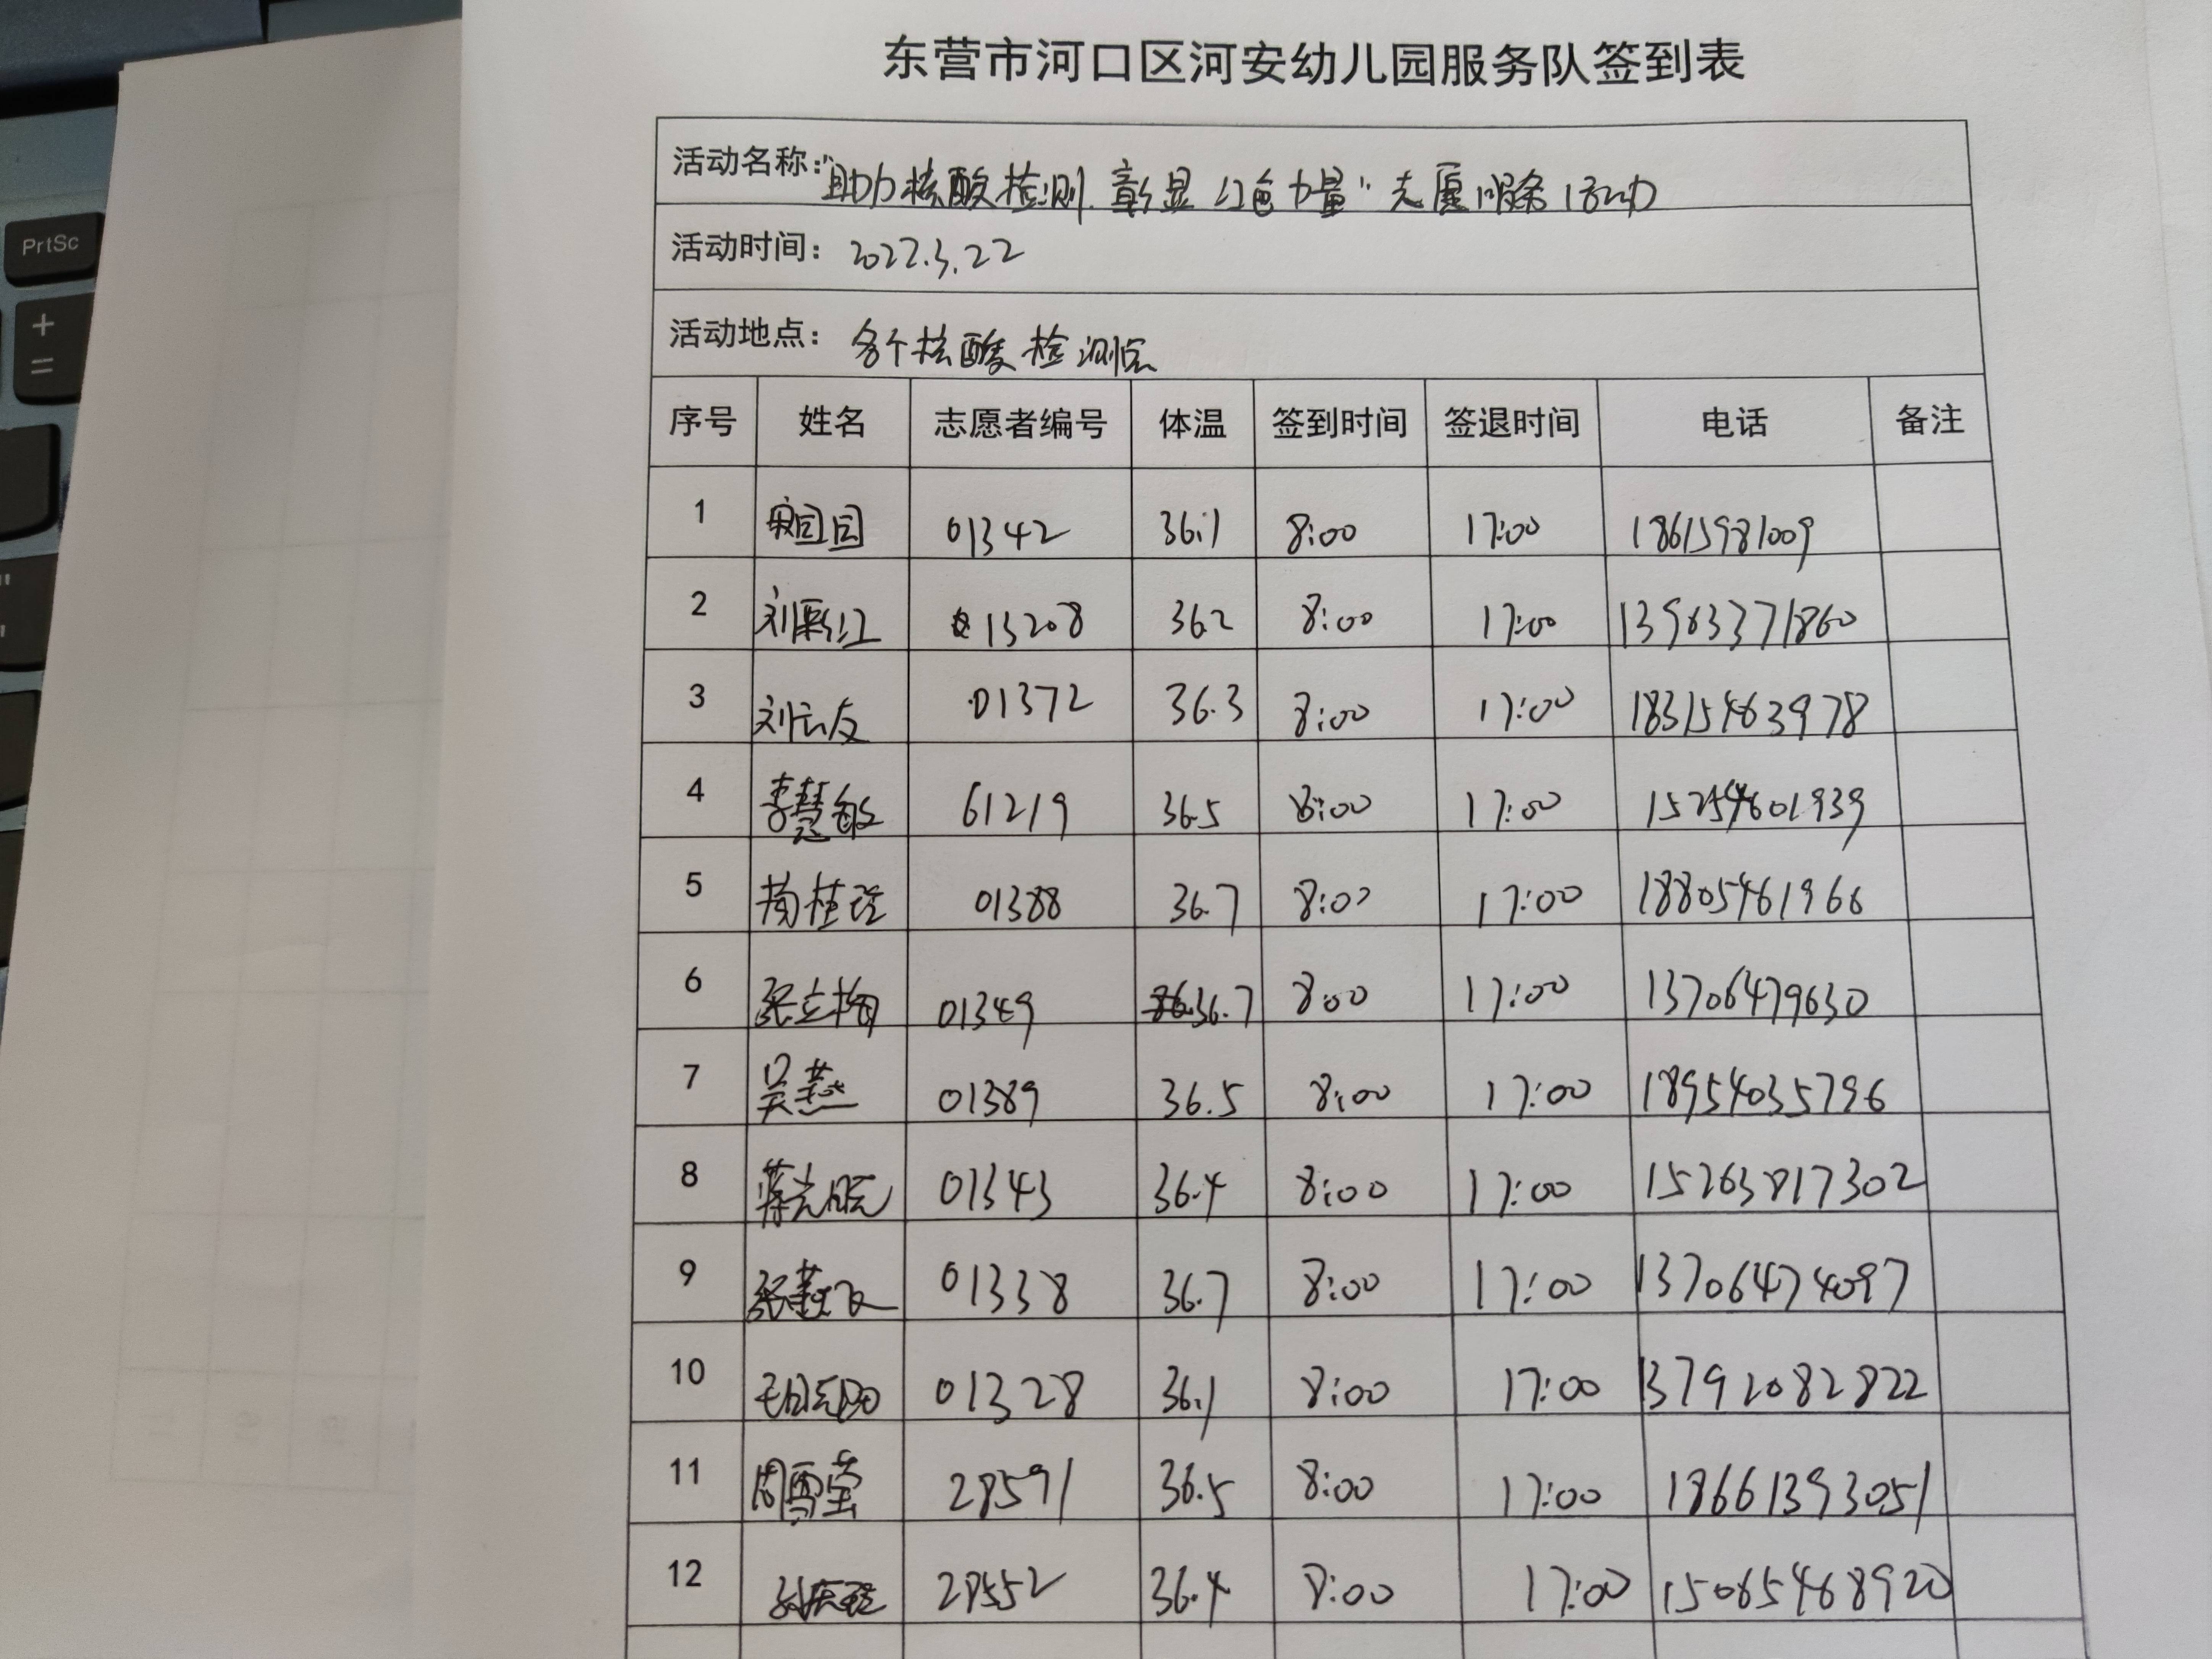 东营市河口区河安幼儿园服务队签到表
活动名称："助力核酸检测.彰显红色力量"志愿服务活动
活动时间：2022.3.22
活动地点：各个核酸检测点
序号 姓名 志愿者编号 体温 签到时间 签退时间 电话 备注
1 01342 36.1 8:00 17:00 18615981009
2 刘彩红 13208 36.2 8:00 17:00 13963371860
3 刘云友 01372 36.3 8:00 17:00 18315463978
4 李慧敏 61219 36.5 8:00 17:00 15254601939
5 01388 36.7 8:00 17:00 18805461966
6 张立梅 01349 36.7 8:00 17:00 13706479630
7 吴燕 01389 36.5 8:00 17:00 18954035796
8 01343 36.4 8:00 17:00 15263817302
9 01338 36.7 8:00 17:00 13706474097
10 01328 36.1 8:00 17:00 13792082822
11 周雪莹 28591 36.5 8:00 17:00 18661393051
12 28552 36.4 8:00 17:00 15065468920
PrtSc
+
=
"
'